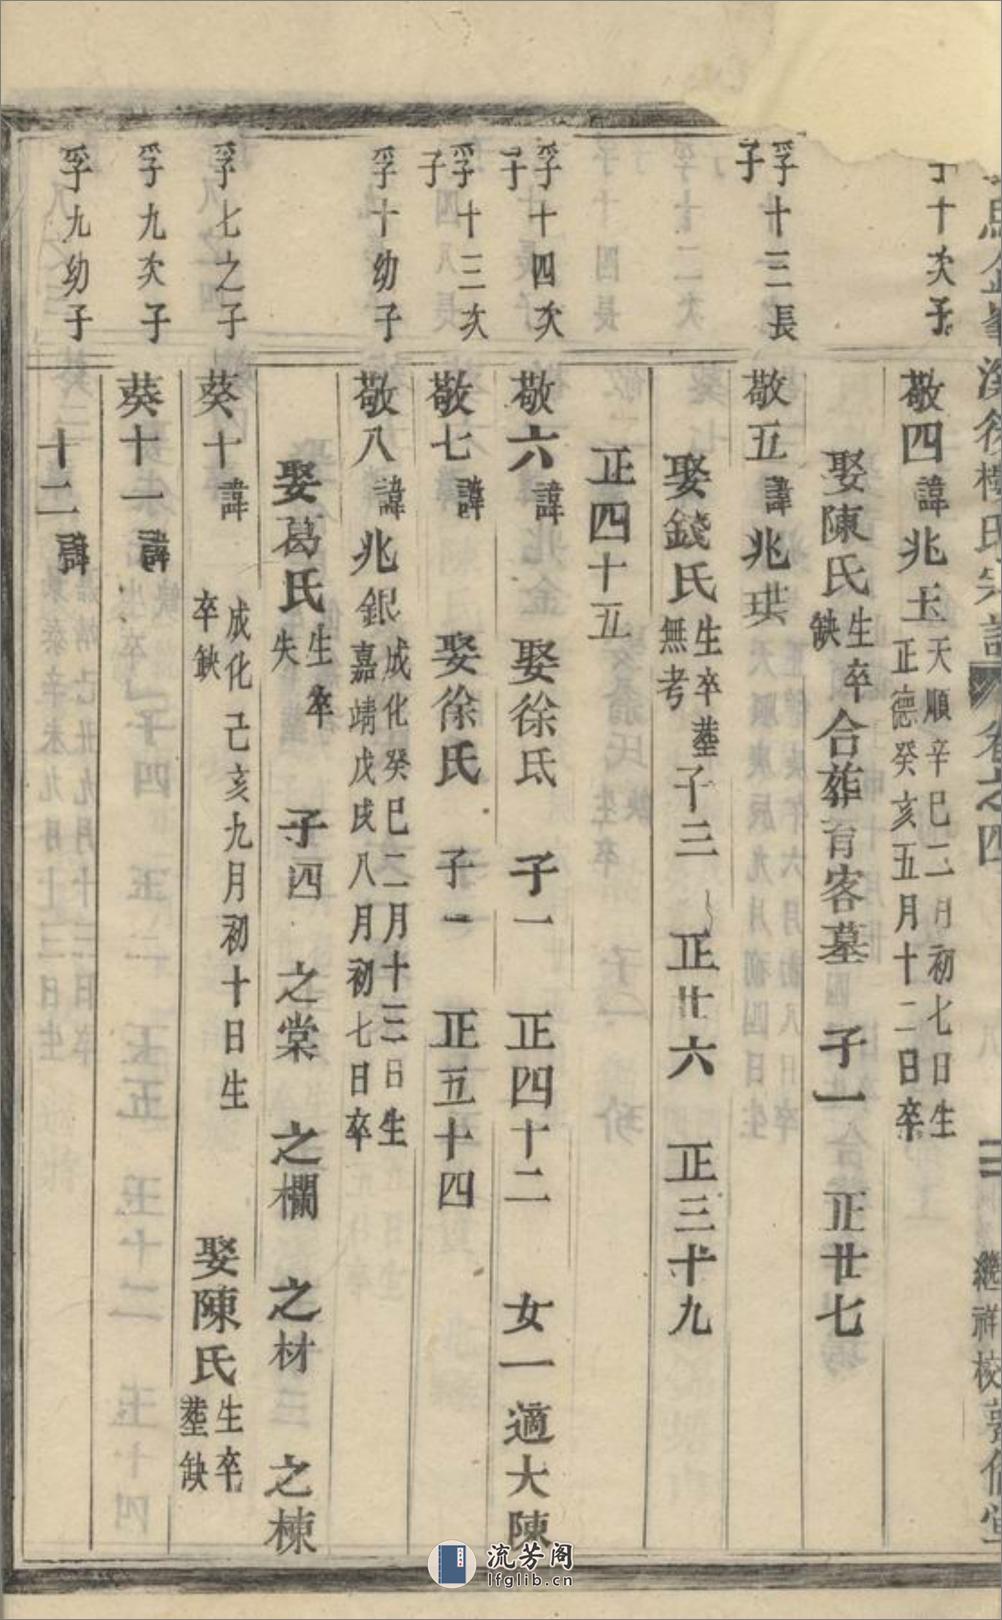 溪後楊氏宗譜 卷之四 二 繼祥校 敦倫堂
十次子
敬四諱兆玉 天順辛巳二月初七日生
正德癸亥五月十二日卒
娶陳氏 生卒
缺 合葬育客墓 子一 正廿七
孚十三長
子
敬五諱兆珙
娶錢氏 生卒塟
無考 子三 正廿六 正三十九
正四十五
孚十四次
子
敬六諱 娶徐氏 子一 正四十二 女一適大陳
孚十三次
子
敬七諱 娶徐氏 子一 正五十四
孚十幼子
敬八諱兆銀 成化癸巳二月十三日生
嘉靖戊戌八月初七日卒
娶葛氏 生卒
失 子四 之棠 之欄 之材 之棟
孚七之子
葵十諱 成化己亥九月初十日生
卒缺 娶陳氏 生卒
塟缺
孚九次子
葵十一諱
孚九幼子
十二諱
流芳阁
lfglib.cn